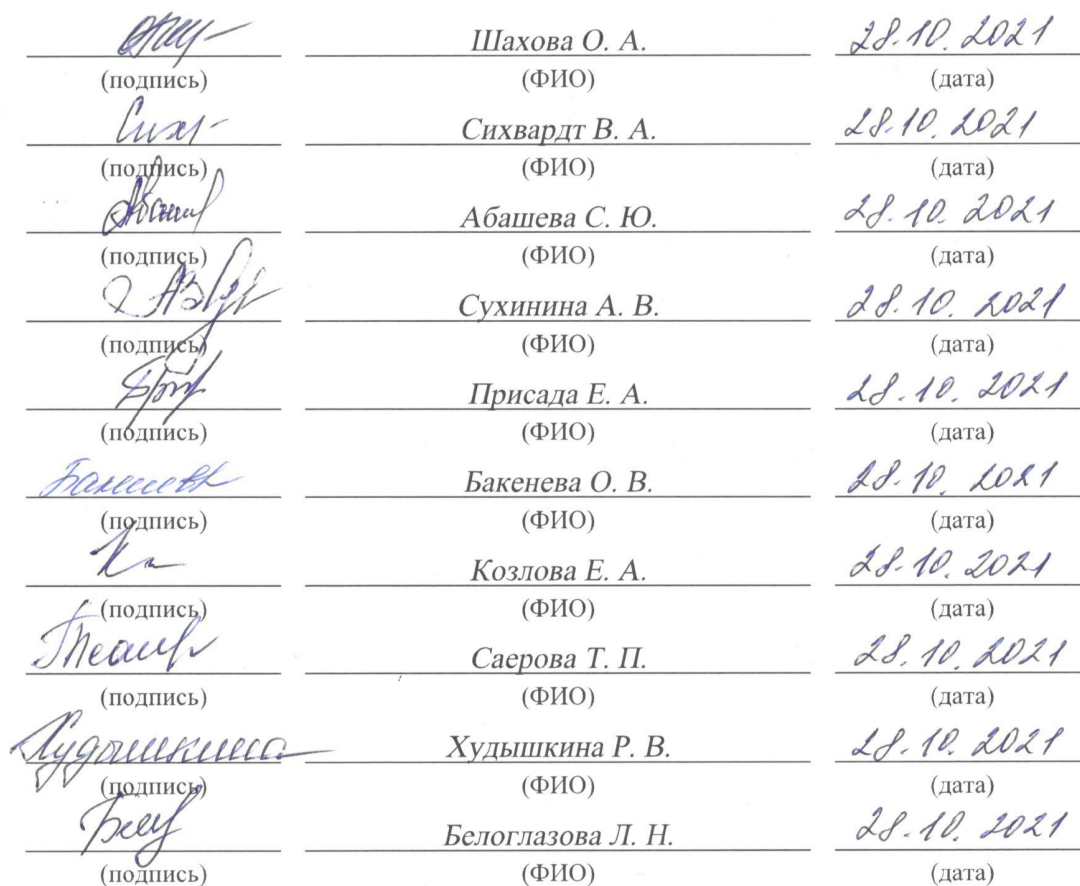 Шахова О. А. 28.10.2021
(подпись) (ФИО) (дата)
Сихв Сихвардт В. А. 28.10.2021
(подпись) (ФИО) (дата)
Абашева С. Ю. 28.10.2021
(подпись) (ФИО) (дата)
Сухинина А. В. 28.10.2021
(подпись) (ФИО) (дата)
Присада Е. А. 28.10.2021
(подпись) (ФИО) (дата)
Бакенева О. В. 28.10.2021
(подпись) (ФИО) (дата)
Козлова Е. А. 28.10.2021
(подпись) (ФИО) (дата)
Саерова Т. П. 28.10.2021
(подпись) (ФИО) (дата)
Худышкина Худышкина Р. В. 28.10.2021
(подпись) (ФИО) (дата)
Белоглазова Л. Н. 28.10.2021
(подпись) (ФИО) (дата)